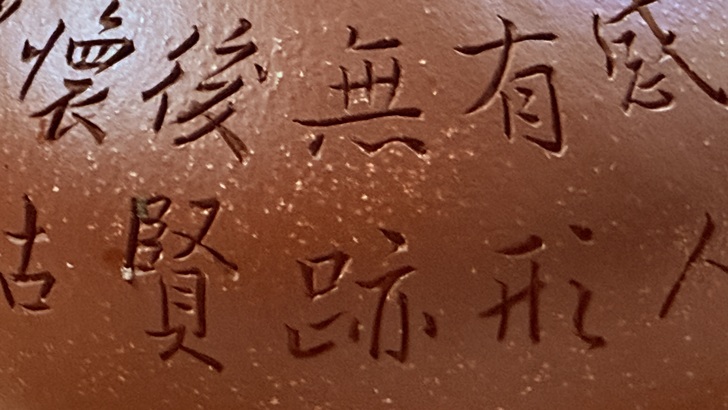 感人
有形
無跡
後賢
懷古